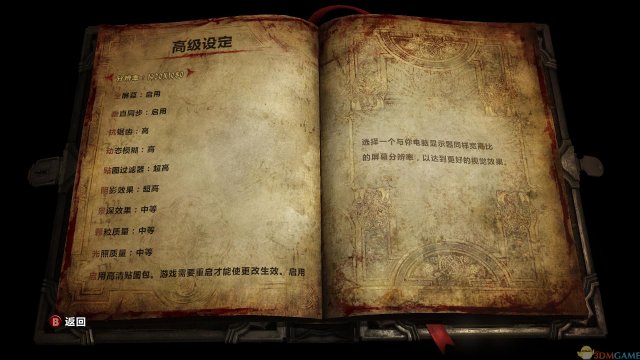 高级设定
分辨率：1920X1080
全屏幕：启用
垂直同步：启用
抗锯齿：高
动态模糊：高
贴图过滤器：超高
阴影效果：超高
景深效果：中等
颗粒质量：中等
光照质量：中等
启用高清贴图包。游戏需要重启才能使更改生效。启用
选择一个与你电脑显示器同样宽高比
的屏幕分辨率，以达到更好的视觉效果。
B 返回
3DMGAME